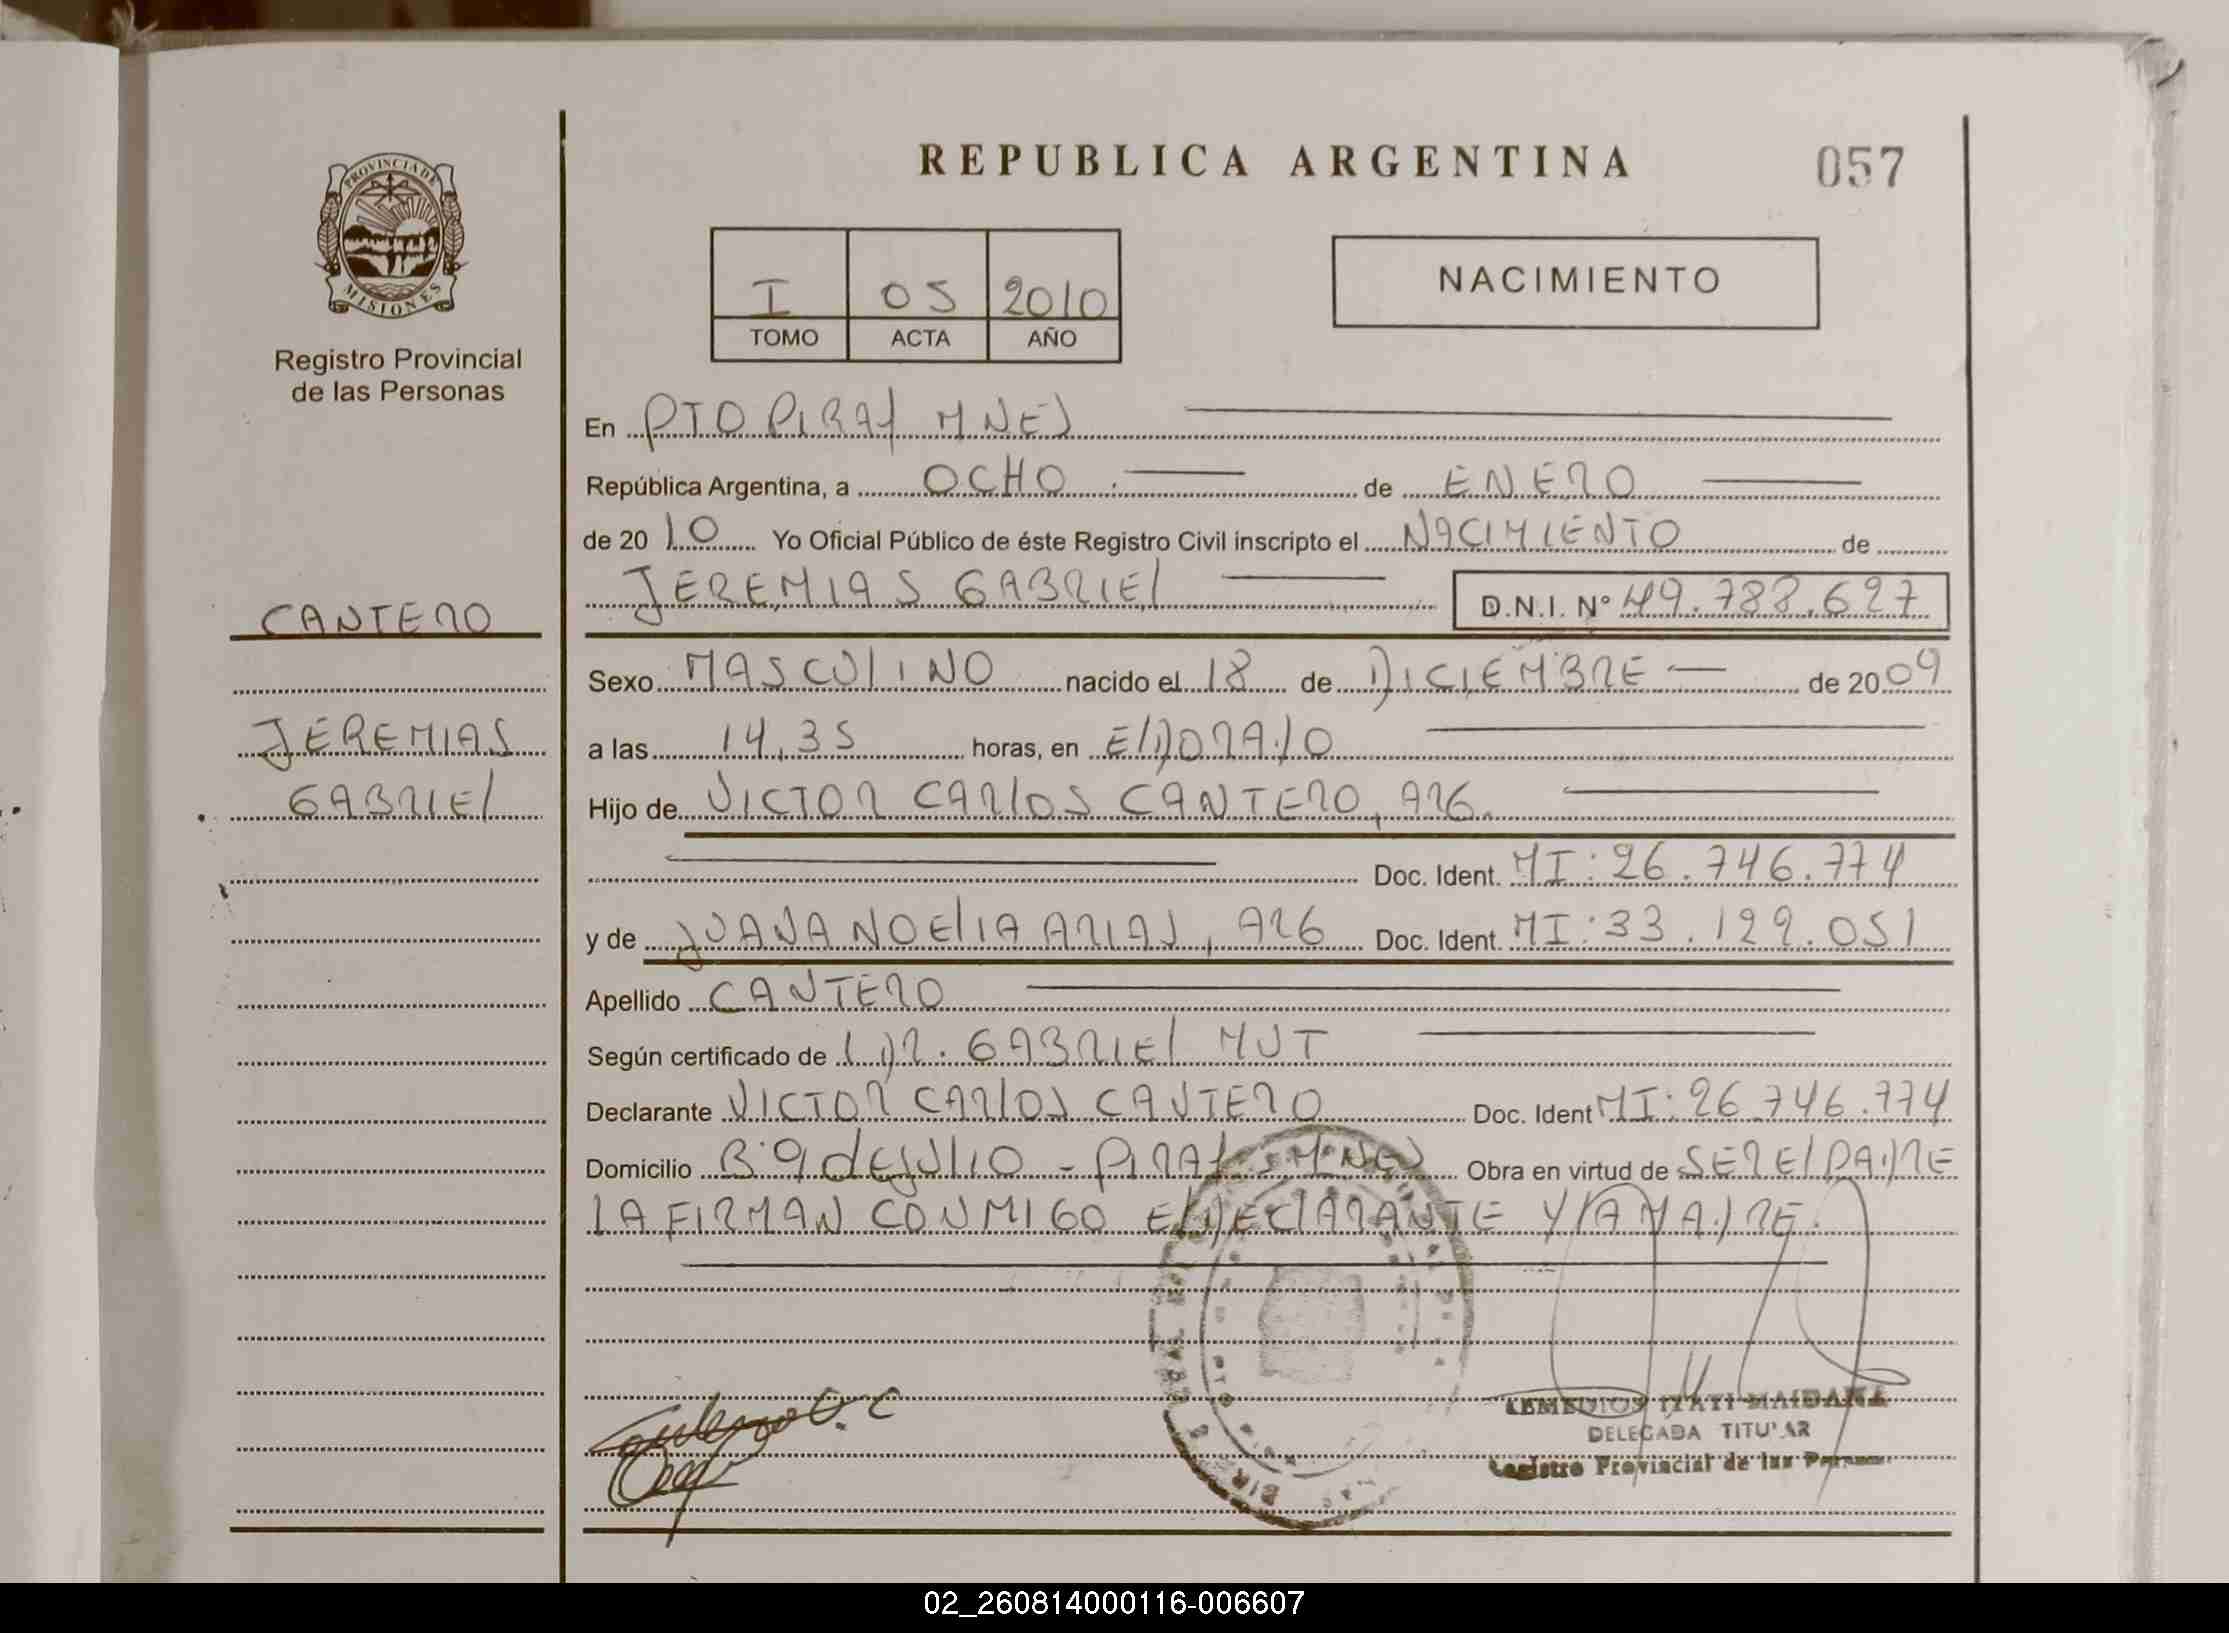 REPUBLICA ARGENTINA
057
PROVINCIA DE
MISIONES
Registro Provincial
de las Personas
I 05 2010
TOMO ACTA AÑO
NACIMIENTO
En PTO PIRAY MNES
República Argentina, a OCHO de ENERO
de 2010 Yo Oficial Público de éste Registro Civil inscripto el NACIMIENTO de
JEREMIAS GABRIEL D.N.I. Nº 49.788.627
CANTERO
Sexo MASCULINO nacido el 18 de DICIEMBRE de 2009
JEREMIAS
a las 14,35 horas, en ElDORADO
GABRIEl
Hijo de VICTOR CARlOS CANTERO, ARG.
Doc. Ident. MI: 26.746.774
y de JUANA NOElIA ARIAS, ARG Doc. Ident. MI: 33.129.051
Apellido CANTERO
Según certificado de DR. GABRIEl MUT
Declarante VICTOR CARlOS CANTERO Doc. Ident MI: 26.746.774
Domicilio Bº 9 de JUlIO - PIRAY MNES Obra en virtud de SER El PADRE
LA FIRMAN CONMIGO El DEClARANTE Y lA MADRE.
ITATI MAIDANA
DELEGADA TITULAR
Registro Provincial de las
02_260814000116-006607